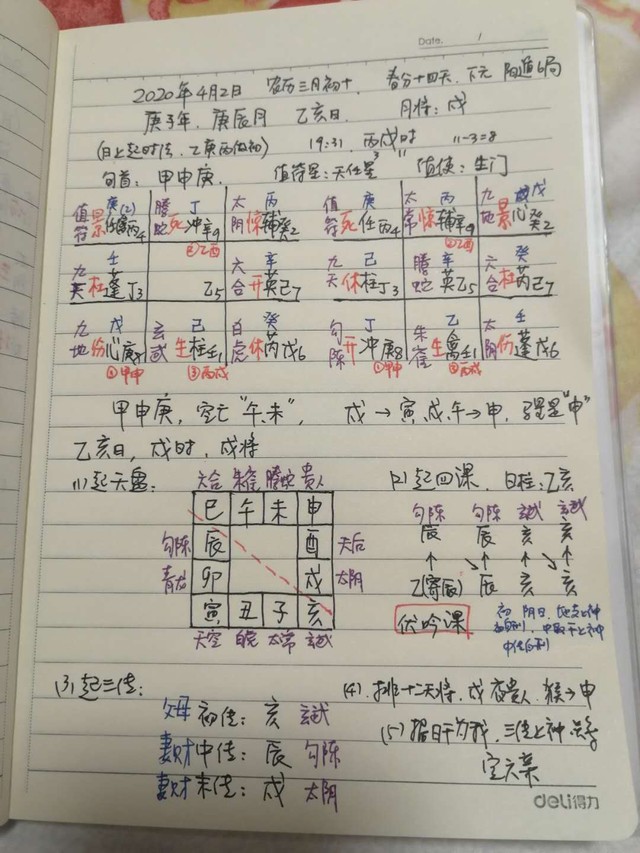 Date. 1
2020年4月2日 农历三月初十, 春分十四天、下元 阳遁6局
庚子年、庚辰月 乙亥日、 月将:戌
(日上起时法、乙庚丙作初) 19:31、丙戌时 11-3=8
旬首: 甲申庚、 值符星:天任星3 11 值使:生门
庚(2) 腾 丁 太 丙 值 庚 太 丙 九 戊
值符 景 丙4 蛇 死 冲辛9 阴 惊 辅癸2 符 死 任丙4 常 惊 辅辛9 地 景 心癸2
②乙酉 ②乙酉
九 壬 六 辛 九 己 腾 辛 六 癸
天 杜 蓬丁3 乙5 合 开 英己7 天 休 柱丁3 蛇 英乙5 合 杜 芮己7
九 戊 玄 己 白 癸 勾 丁 朱 乙 太 壬
地 伤 心庚8 武 生 柱壬1 虎 休 芮戊6 陈 开 冲庚8 雀 生 禽壬1 阴 伤 蓬戊6
①甲申 ③丙戌 ①甲申 ③丙戌
甲申庚, 空亡“午、未”, 戌→寅、戌、午→申, 驿马是“申”
乙亥日, 戌时, 戌将
(1)起天盘: 六合 朱雀 腾蛇 贵人 (2)起四课、日柱:乙亥
巳 午 未 申 勾陈 勾陈 玄武 玄武
勾陈 辰 酉 天后 辰 辰 亥 亥
青龙 卯 戌 太阴 乙(寄辰) 辰 亥 亥
寅 丑 子 亥 伏吟课
天空 白虎 太常 玄武
(3)起三传: (4)、排十二天将、戌夜贵人、猴→申
父母 初传: 亥 玄武 (5)、据日干为我、三传上神
妻财 中传: 辰 勾陈 定六亲
妻财 末传: 戌 太阴
deli得力